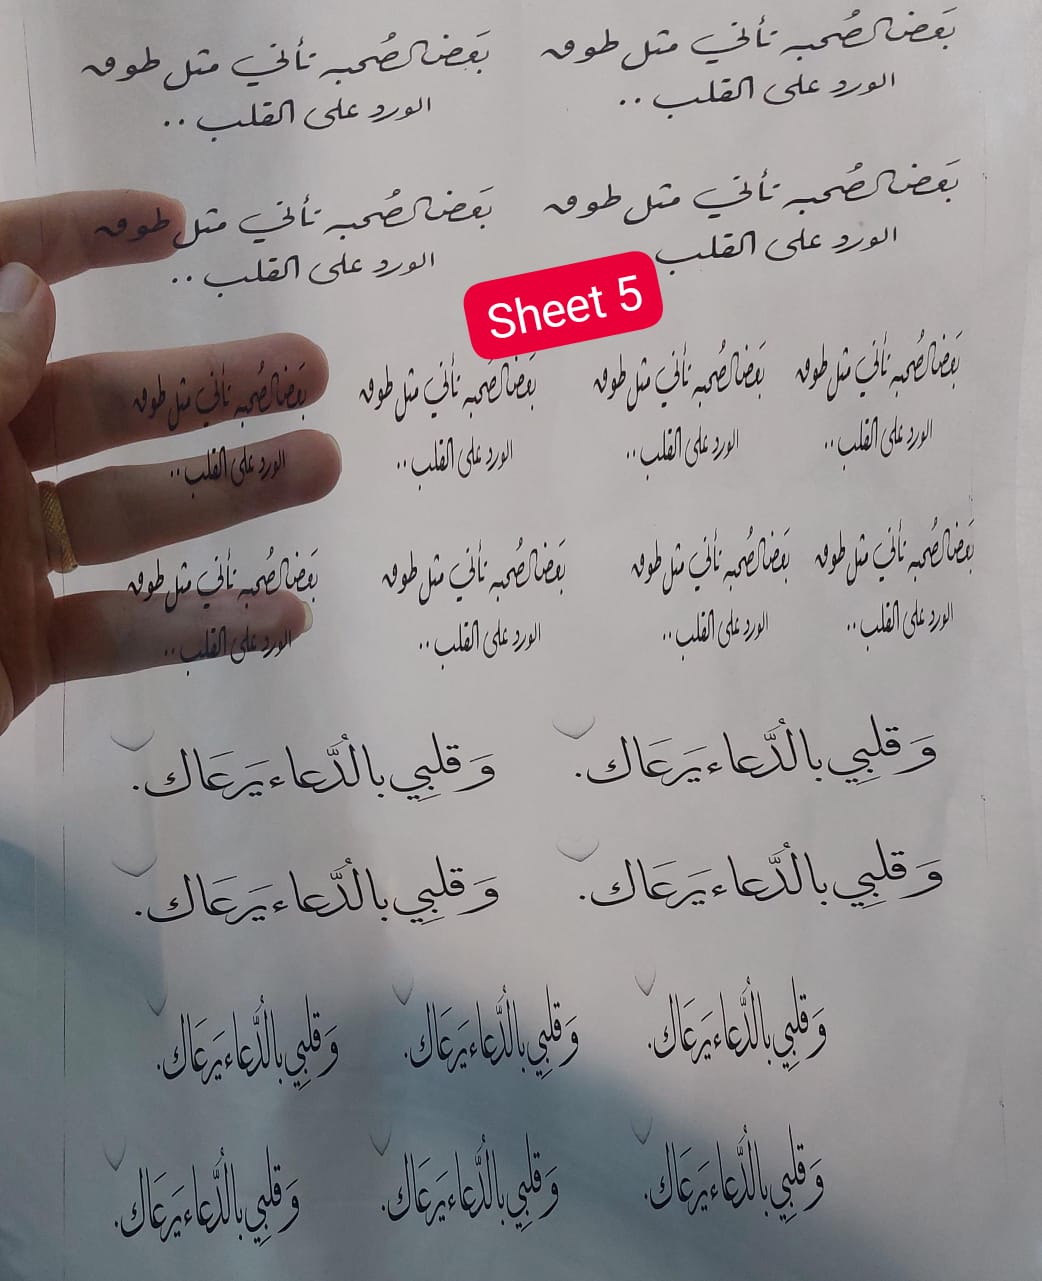 بَعَض الصُحبه تأتي مثل طوق
الورد على القلب ..
بَعَض الصُحبه تأتي مثل طوق
الورد على القلب ..
بَعَض الصُحبه تأتي مثل طوق
الورد على القلب
بَعَض الصُحبه تأتي مثل طوق
الورد على القلب ..
Sheet 5
بَعَض الصُحبه تأتي مثل طوق
الورد على القلب ..
بَعَض الصُحبه تأتي مثل طوق
الورد على القلب ..
بَعَض الصُحبه تأتي مثل طوق
الورد على القلب ..
بَعَض الصُحبه تأتي مثل طوق
الورد على القلب ..
بَعَض الصُحبه تأتي مثل طوق
الورد على القلب ..
بَعَض الصُحبه تأتي مثل طوق
الورد على القلب ..
بَعَض الصُحبه تأتي مثل طوق
الورد على القلب ..
بَعَض الصُحبه تأتي مثل طوق
الورد على القلب ..
وَ قلبِي بالدُّعاء يَرعَاك.
وَ قلبِي بالدُّعاء يَرعَاك.
وَ قلبِي بالدُّعاء يَرعَاك.
وَ قلبِي بالدُّعاء يَرعَاك.
وَ قلبِي بالدُّعاء يَرعَاك.
وَ قلبِي بالدُّعاء يَرعَاك.
وَ قلبِي بالدُّعاء يَرعَاك.
وَ قلبِي بالدُّعاء يَرعَاك.
وَ قلبِي بالدُّعاء يَرعَاك.
وَ قلبِي بالدُّعاء يَرعَاك.